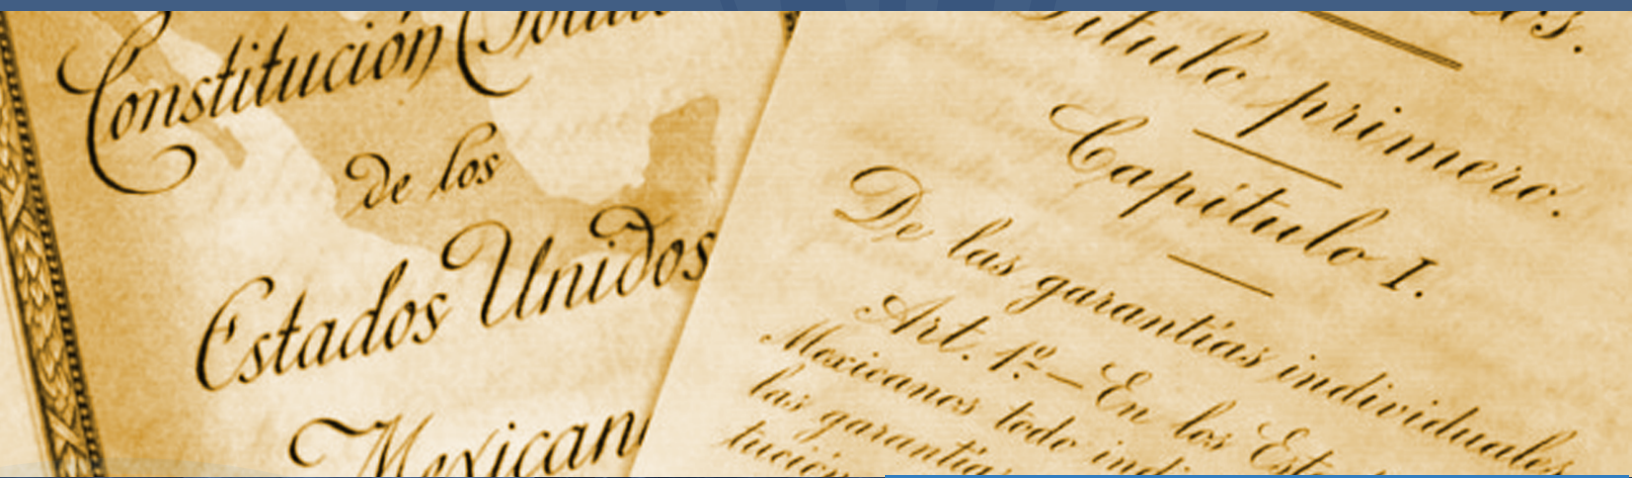 Constitución
de los
Estados Unidos
Mexican
ítulo primero.
Capítulo I.
De las garantías individuales
Art. 1º.—En los Est
Mexicanos todo indi
las garantías
tución